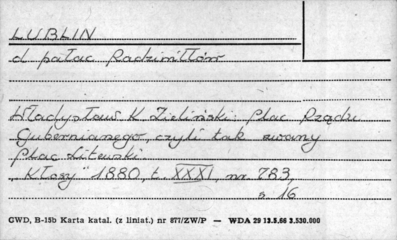 LUBLIN
d pałac Radziwiłłów
Władysław K. Zieliński: Plac Rządu
Gubernianego, czyli tak zwany
Plac Litewski.
"Kłosy" 1880, t. XXXI, nr. 783,
s. 16
CWD, B-15b Karta katal. (z liniat.) nr 877/ZW/P — WDA 29 13.5.66 3.530.000